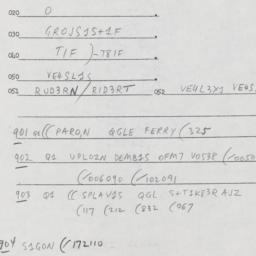 020 O
030 GROJS1S+1F
040 T1F )-T81F
050 VE4SL1S
051 RUD3RN/RID3RT 052 VE4L3Y1 VE4S
901 QGLE FERRY (325
902 Q1 UPLOZN DEMB1S OFM7 VO538 (/0050
(/006090 (/102091
903 Q1 (( SPLAV1S QGL S+T1K83R AJZ
(117 (212 (832 (967
904 S1GON (/172110